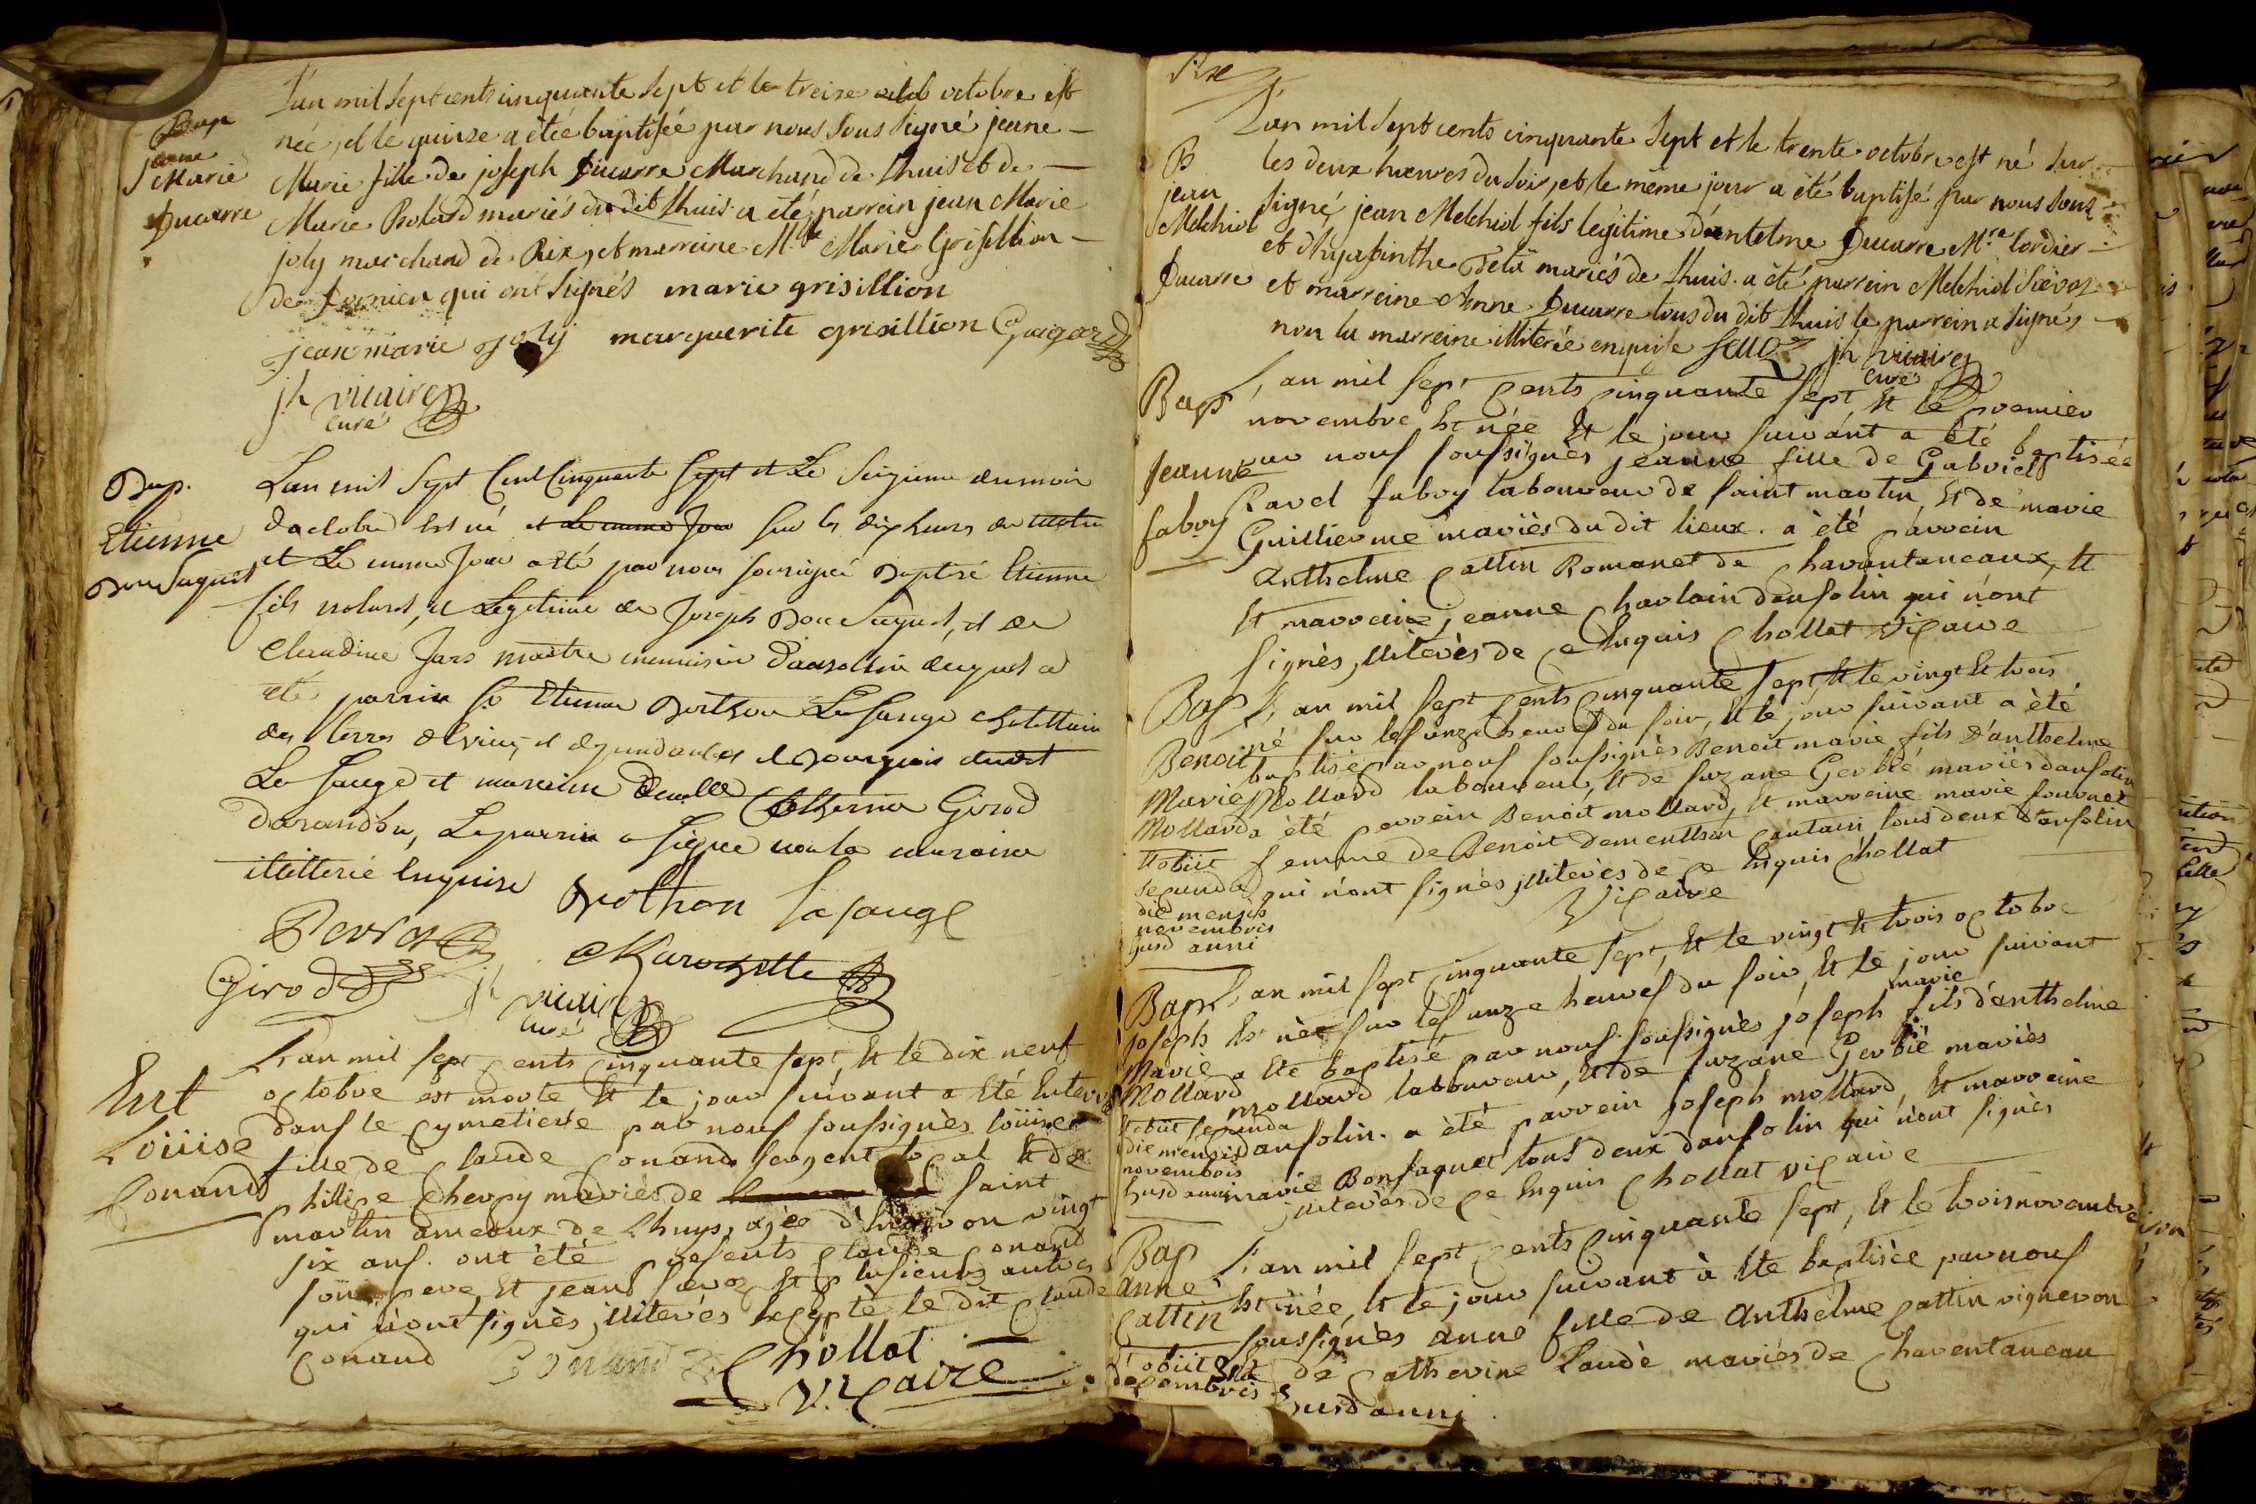 L'an mil sept cents cinquante sept et le treize octobre est
Bap
née, et le quinze a étée baptisée par nous sous signé jeane
jeane
Marie
Marie fille de joseph Ducarre Marchand de Lhuis et de
Ducarre
Marie Bolard mariés du dit Lhuis a été parrain jean Marie
joly marchand de Rix, et marreine Mlle Marie Grisillion
de qui ont signés marie grisillion
jean marie joly marguerite grisillion
jh vicaire
curé
Bap.
Etienne
Bonsaquet
L'an mil Sept Cent Cinquante Sept et Le du mois
d'octobre est né et le meme jour sur les dix heures du matin
et Le meme Jour a été par nous soussigné Baptisé Etienne
fils naturel, et Legitime de Joseph Bonsaquet, et de
Claudine Jars maitre menuisier d'ansollin duquel a
été parrin Sr Etienne Berthon Lasauge chatellain
des terres et Bourgeois dudit
La Sauge et maraine Catherine Girod
Darandon, Le parrin a signé non la maraine
illitterée Enquise
Berthon Lasauge
Girod
jh vicaire
curé
Ent
Loüise
Conand
L'an mil sept cents cinquante sept, Et le dix neuf
octobre est morte Et le jour suivant a Eté Enterré
dans le cymetiere par nous soussignès loüise
fille de claude conand sergent local Et de
philipe Cherpy mariès de saint
martin ameaux de Lhuys, agèe d'Environ vingt
six ans. ont èté presents claude conand
son pere, Et jean sevoz Et plusieurs autres
qui n'ont signès, illiterés Excepté le dit claude
conand Conand Chollat
Vicaire
L'an mil sept cents cinquante sept et le trente octobre est né sur
B
jean
Melchiol
Ducarre
les deux heures du soir, et le même jour a été baptisé par nous sous
signé jean Melchiol fils legitime d'antelme Ducarre Mre Cordier
et d'hyasinthe mariés de Lhuis. a été parrein Melchiol Siévoz
et marreine Anne Ducarre tous du dit Lhuis le parrein a signés
non la marreine illiterée enquise jh vicaire
curé
Bap
Jeanne
fabvy
L'an mil sept cents cinquante sept Et le premier
novembre Est née Et le jour suivant a èté baptisée
par nous soussignès jeanne fille de Gabriel
Ravel fabvy laboureur de saint martin, Et de marie
Guillierme mariès du dit lieux. a èté parrein
anthelme cattin Romanet de chavantaneaux, Et
Et marreine, jeanne charlain dansolin qui n'ont
signès, illiterès de ce Enquis Chollat Vicaire
Bap
Benoit
Marie
Mollard
Et obiit
secunda
die mensis
novembris
husd anni
L'an mil sept cents cinquante sept, Et le vingt Et trois
né sur les unze heures du soir, Et le jour suivant a èté
baptisé par nous soussignès Benoit marie fils d'anthelme
Mollard laboureur, Et de suzane Gerbié mariès dansolin
a èté perrein Benoit mollard, Et marreine marie fournet
femme de Benoit dementhon cantain tous deux dansolin
qui n'ont signès, illiterès de ce Enquis Chollat
Vicaire
Bap
joseph
Marie
Mollard
Et obiit secunda
die mensis
novembris
husd anni
L'an mil sept cinquante sept, Et le vingt Et trois octobre
Est nèe sur les unze heures du soir, Et le jour suivant
marie
a Eté baptisé par nous soussignès joseph fils d'anthelme
mollard laboureur, Et de suzane Gerbié mariès
dansolin. a èté parrein joseph mollard, Et marreine
marie Bonsaquet tous deux dansolin qui n'ont signès
illiterès de ce Enquis Chollat vicaire
Bap
anne
Cattin
obiit
decembris
husd anni
L'an mil sept cents cinquante sept, Et le trois novembre
Est née, Et le jour suivant à Eté baptisèe par nous
soussignès anne fille de anthelme cattin vigneron
Et de catherine Laudè mariès de chaventaneau